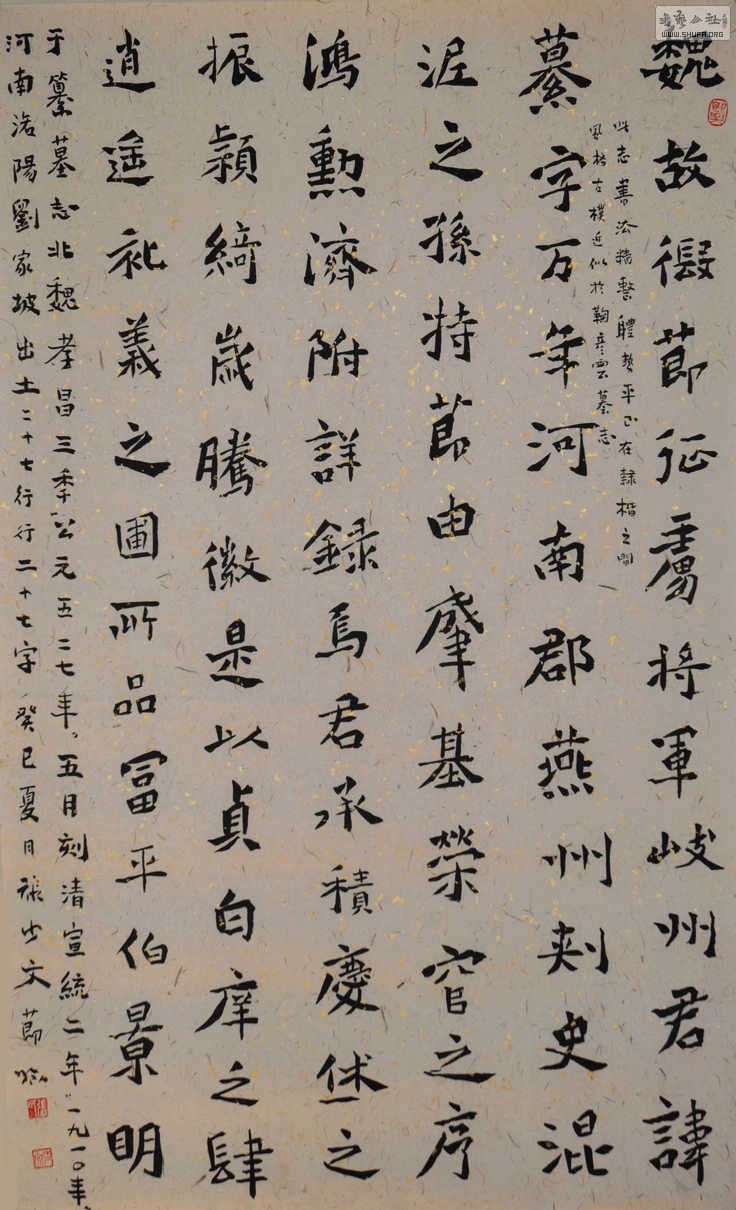 魏故假節征虜將軍岐州君諱
纂字万年河南郡燕州刾史混
泥之孫特節由肇基榮官之序
鴻勲濟附詳録焉君承積慶体之
振穎綺歲騰徽是以貞白庠之肆
逍遥礼義之圃所品冨平伯景明
此志書法精整體势平正在隸楷之間
風格古樸近似於鞠彦雲墓志
于纂墓志北魏孝昌三季公元五二七年。五月刻清宣統二年一九一〇年、
河南洛陽劉家坡出土二十七行行二十七字癸巳夏日張少文節臨
书法公社
www.SHUFA.ORG